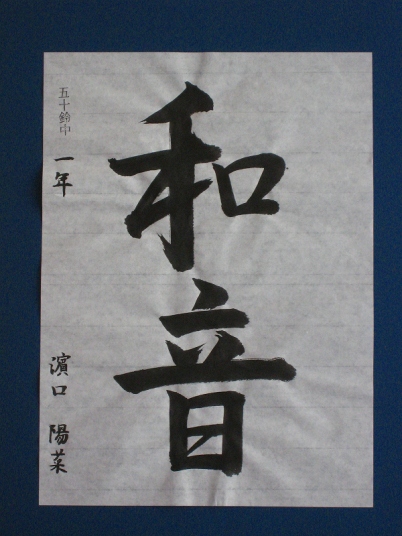 和音
五十鈴中 一年 濱口 陽菜